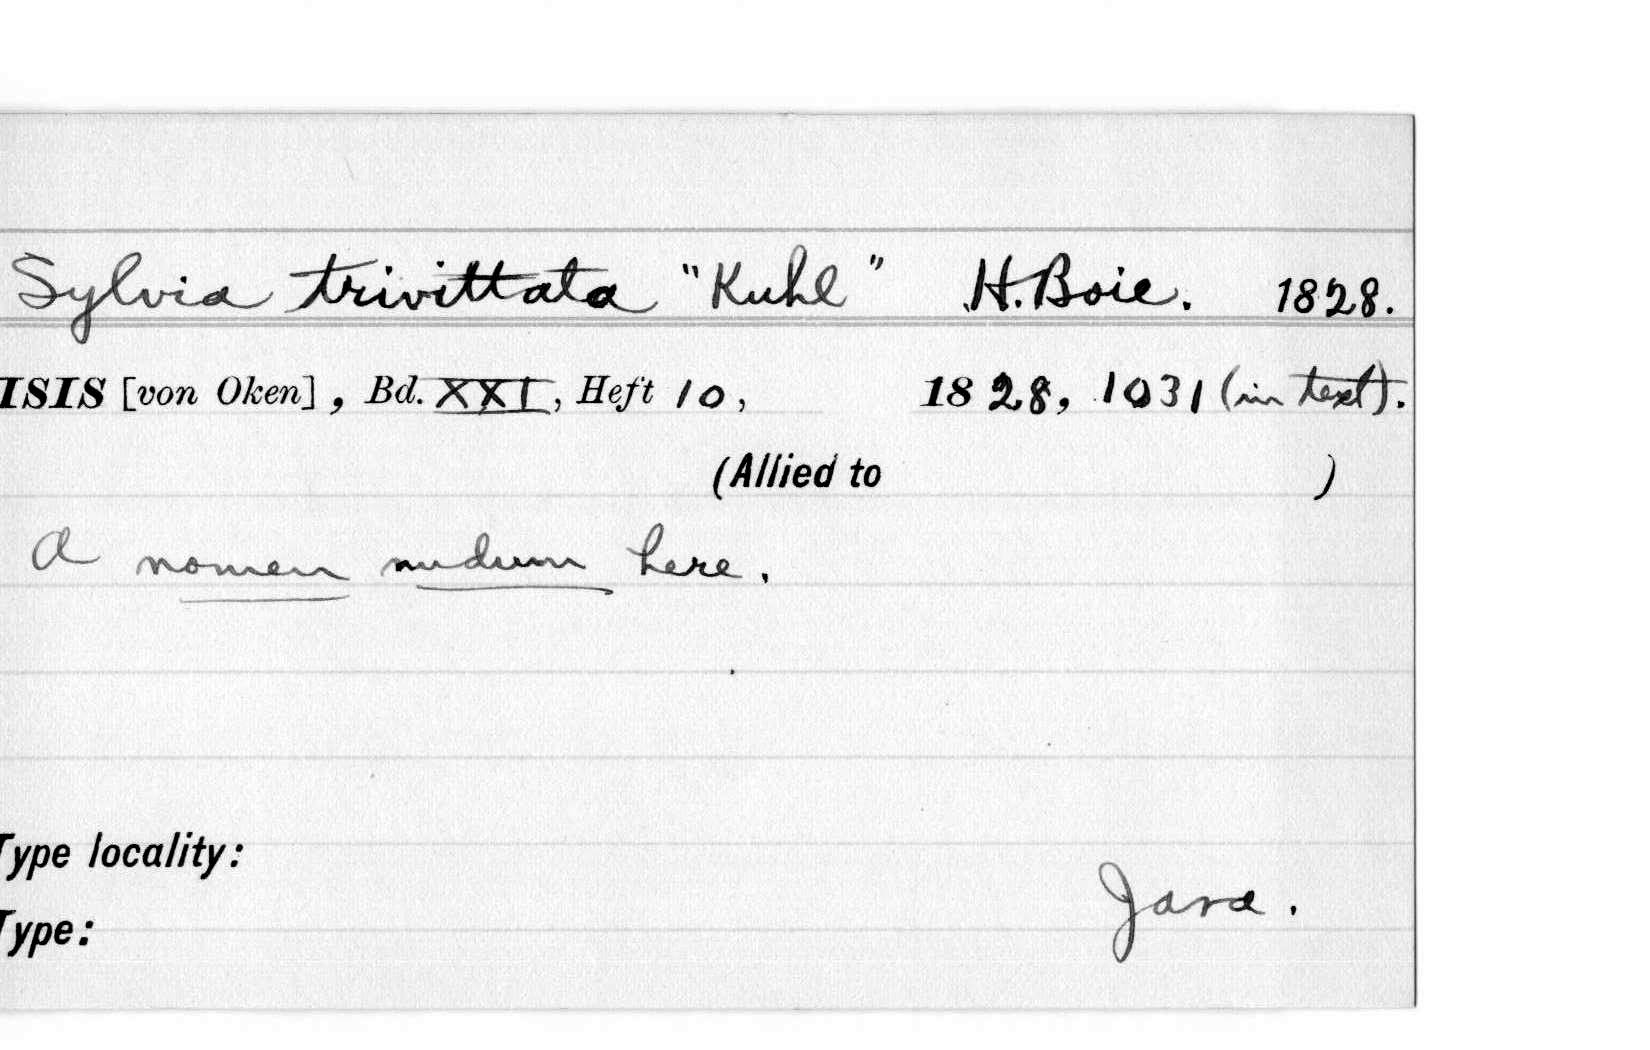 Sylvia trivittata "Kuhl" H. Boie. 1828.
ISIS [von Oken], Bd. XXI, Heft 10, 1828, 1031 (in text).
(Allied to )
A nomen nudum here.
Type locality:
Java.
Type: